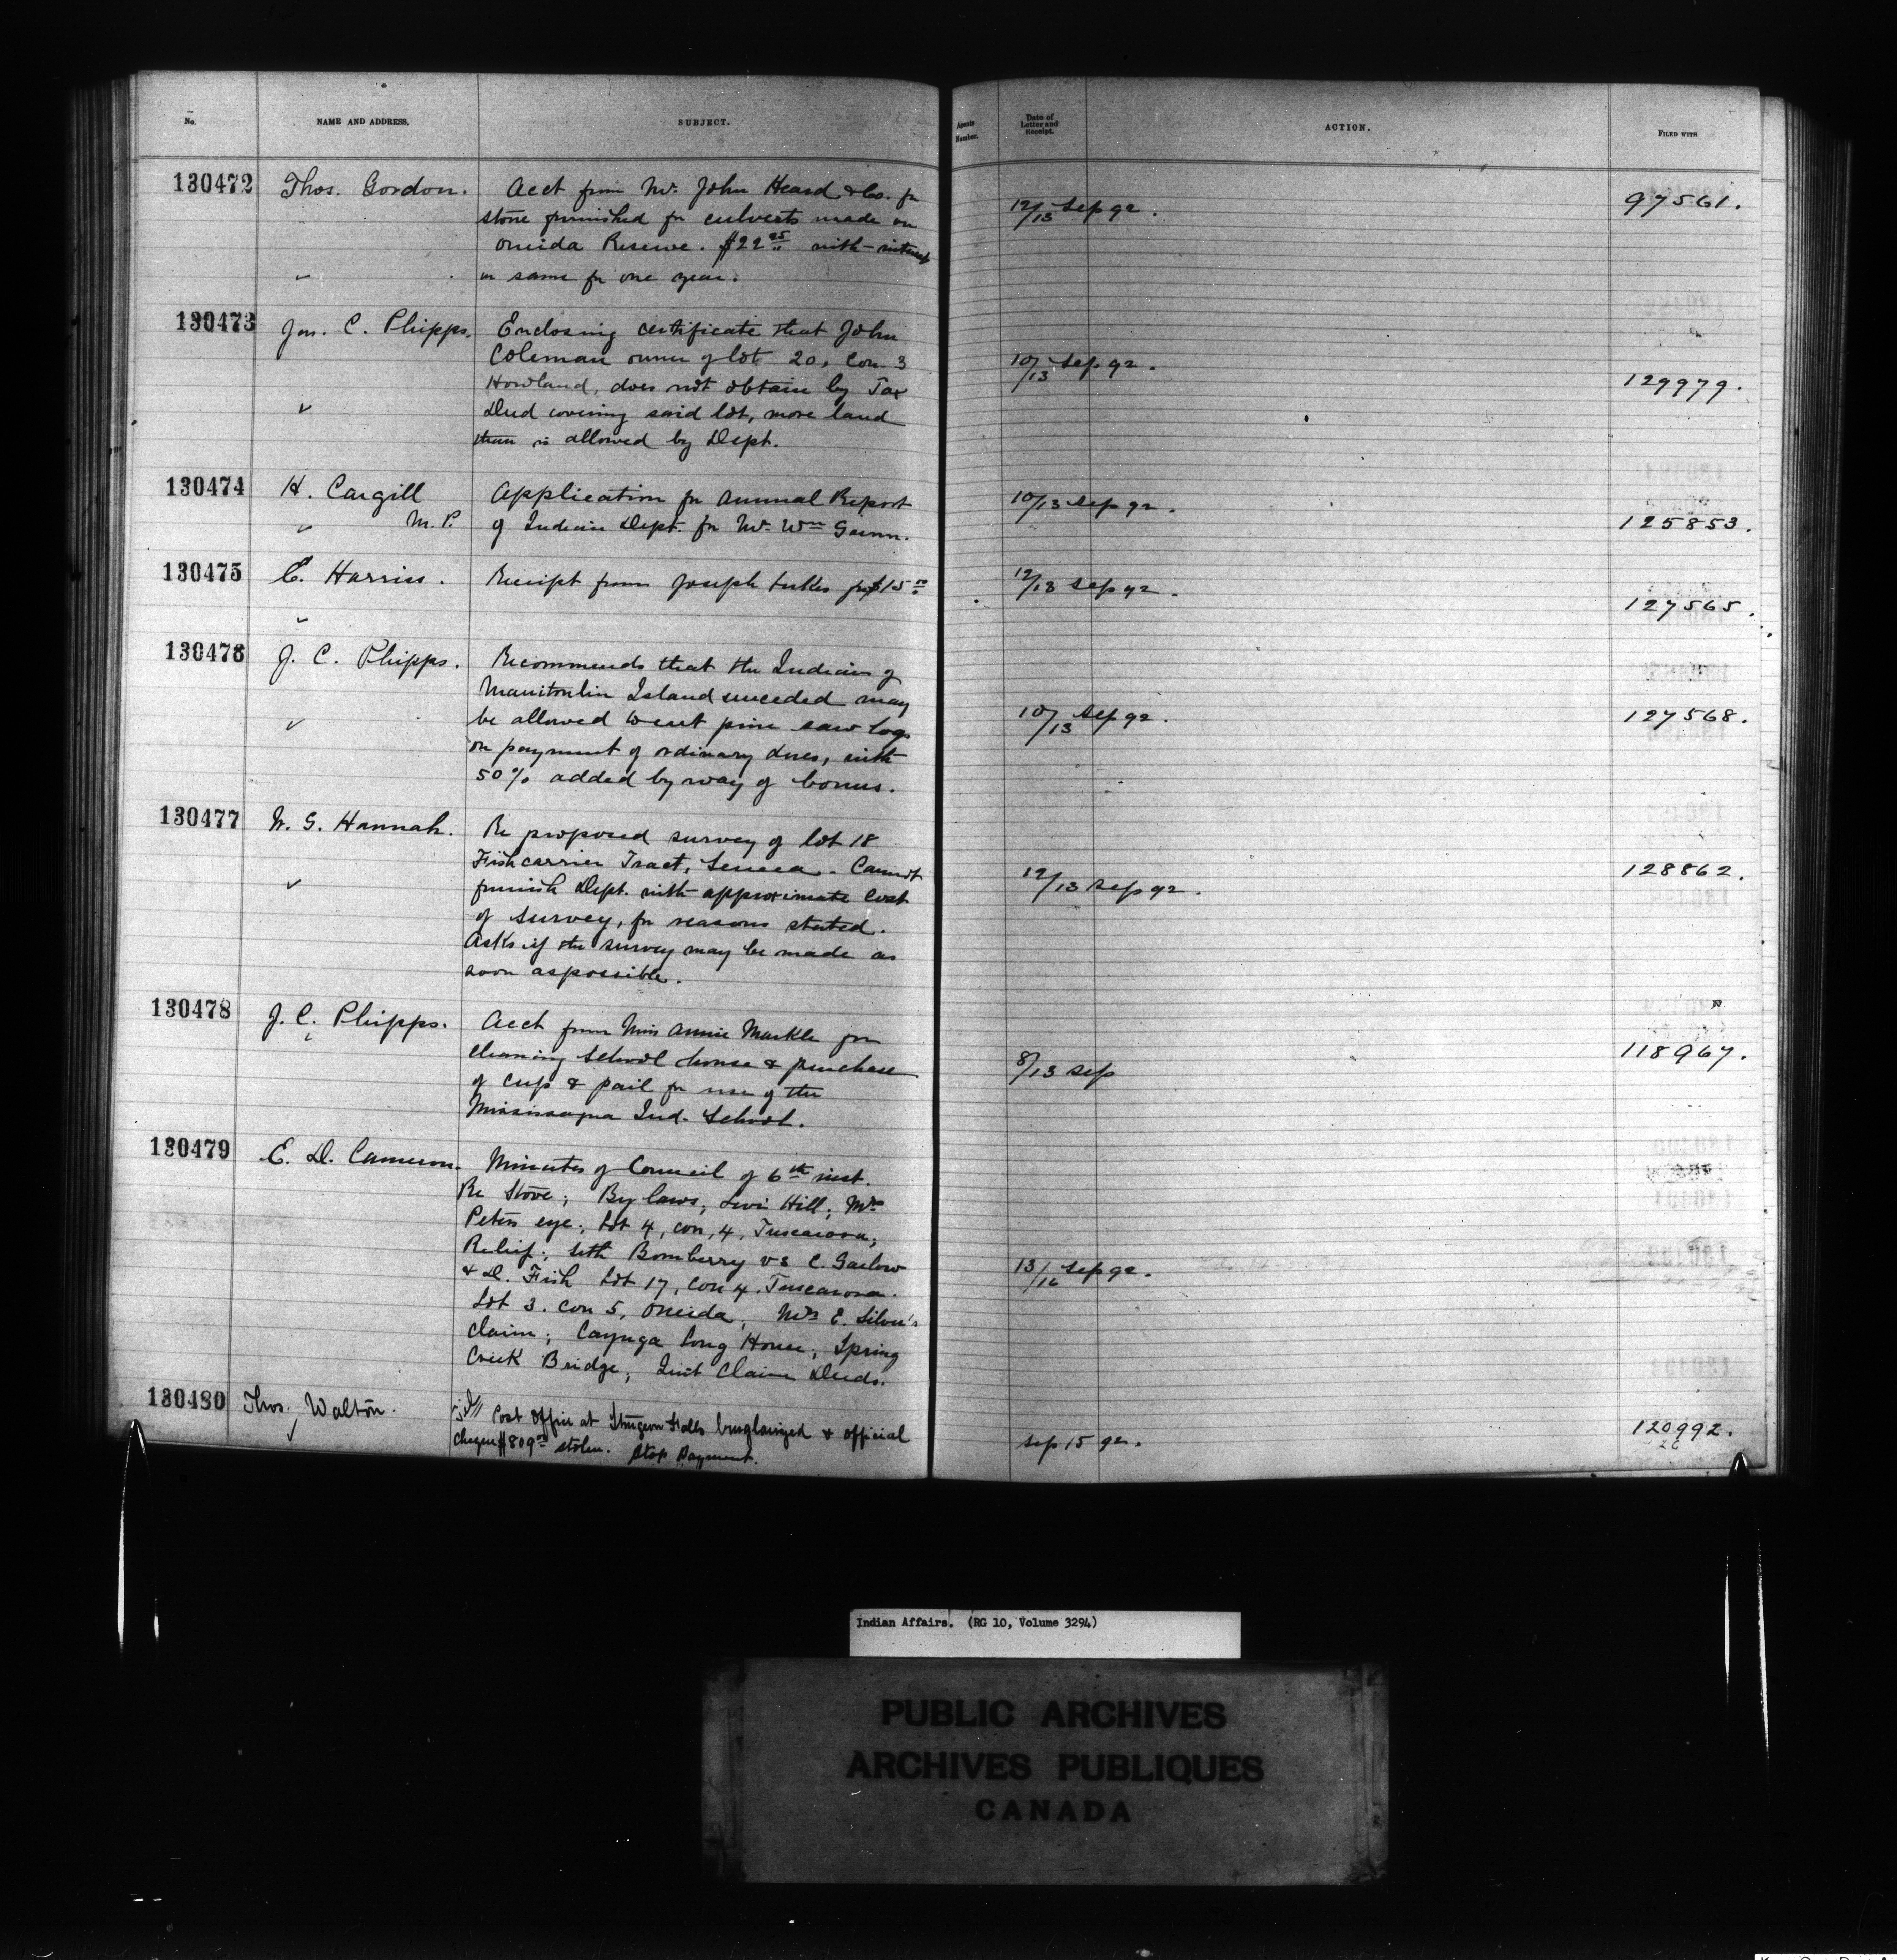 No. NAME AND ADDRESS. SUBJECT. Agents Number. Date of Letter and Receipt. ACTION. FILED WITH
130472 Thos. Gordon. Acct from Mr. John Heard & Co. for
stone furnished for culverts made on 12/13 Sep 92. 97561.
Oneida Reserve. $22 25 with interest
on same for one year.
130473 Jas. C. Phipps. Enclosing certificate that John
Coleman owner of lot 20, Con. 3 10/13 Sep 92.
Howland, does not obtain by Tax 129979.
Deed covering said lot, more land
than is allowed by Dept.
130474 H. Cargill Application for Annual Report 10/13 Sep 92.
M.P. of Indian Dept. for Mr. Wm 125853.
130475 C. Harriss. Receipt from Joseph for $15 12/13 Sep 92.
127565.
130476 J. C. Phipps. Recommends that the Indians of
Manitoulin Island unceded may
be allowed to cut pine saw logs 10/13 Sep 92. 127568.
on payment of ordinary dues, with
50% added by way of bonus.
130477 W. G. Hannah. Re proposed survey of lot 18
Fishcarrier Tract, Seneca. Cannot 128862.
furnish Dept. with approximate cost 12/13 Sep 92.
of survey, for reasons stated.
Asks if the survey may be made as
soon as possible.
130478 J. C. Phipps. Acct from Miss Annie Markle for
cleaning school house & purchase 8/13 Sep 118967.
of cup & pail for use of the
Mississagua Ind. School.
130479 E. D. Cameron. Minutes of Council of 6th inst.
Re Stove; By laws; Levi Hill; Mrs
Peters eye; Lot 4, con, 4, Tuscarora;
Relief; Seth Bomberry vs C. Garlow
& D. Fish Lot 17, Con 4. Tuscarora. 13/16 Sep 92.
Lot 3. Con 5, Oneida; Mrs E. Silver's
claim; Cayuga Long House; Spring
Creek Bridge; Quit Claim Deeds.
130480 Thos. Walton. Post Office at Sturgeon Falls burglarized & official 120992.
cheque $809 stolen. Stop Payment. Sep 15 92.
Indian Affairs. (RG 10, Volume 3294)
PUBLIC ARCHIVES
ARCHIVES PUBLIQUES
CANADA